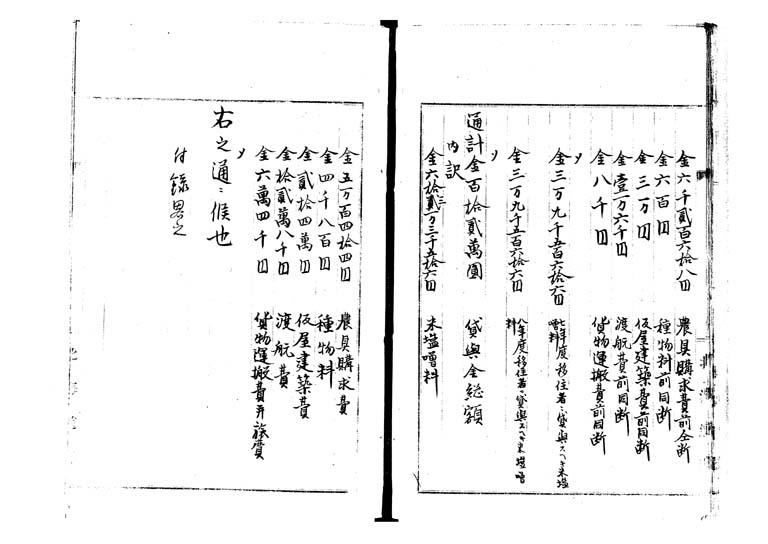 金六千貳百六拾八円 農具購求費前仝断
金六百円 種物料前同断
金三万円 仮屋建築費前同断
金壹万六千円 渡航費前同断
金八千円 貨物運搬費前同断
〆
金三万九千五百六拾六円 七年度移住者ニ貸與スヘキ米塩噌料
金三万九千五百六拾六円 八年度移住者ニ貸與スヘキ米塩噌料
〆
通計金百拾貳萬圓 貸與金総額
内訳
金六拾貳万三千五拾六円 米塩噌料
金五万百四拾四円 農具購求費
金四千八百円 種物料
金貳拾四萬円 仮屋建築費
金拾貳萬八千円 渡航費
金六萬四千円 貨物運搬費并旅費
〆
右之通ニ候也
付録畧之